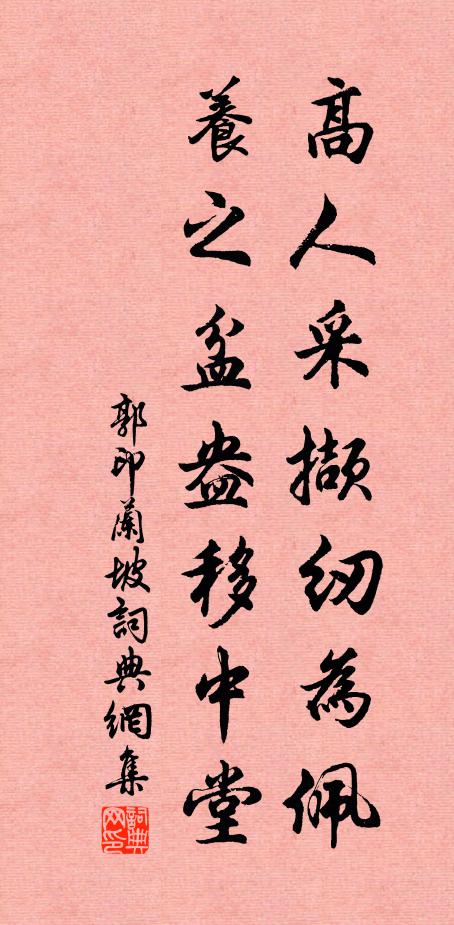 高人采擷紉為佩
養之盆盎移中堂
郭印蘭坡詞典網集
詞典网印